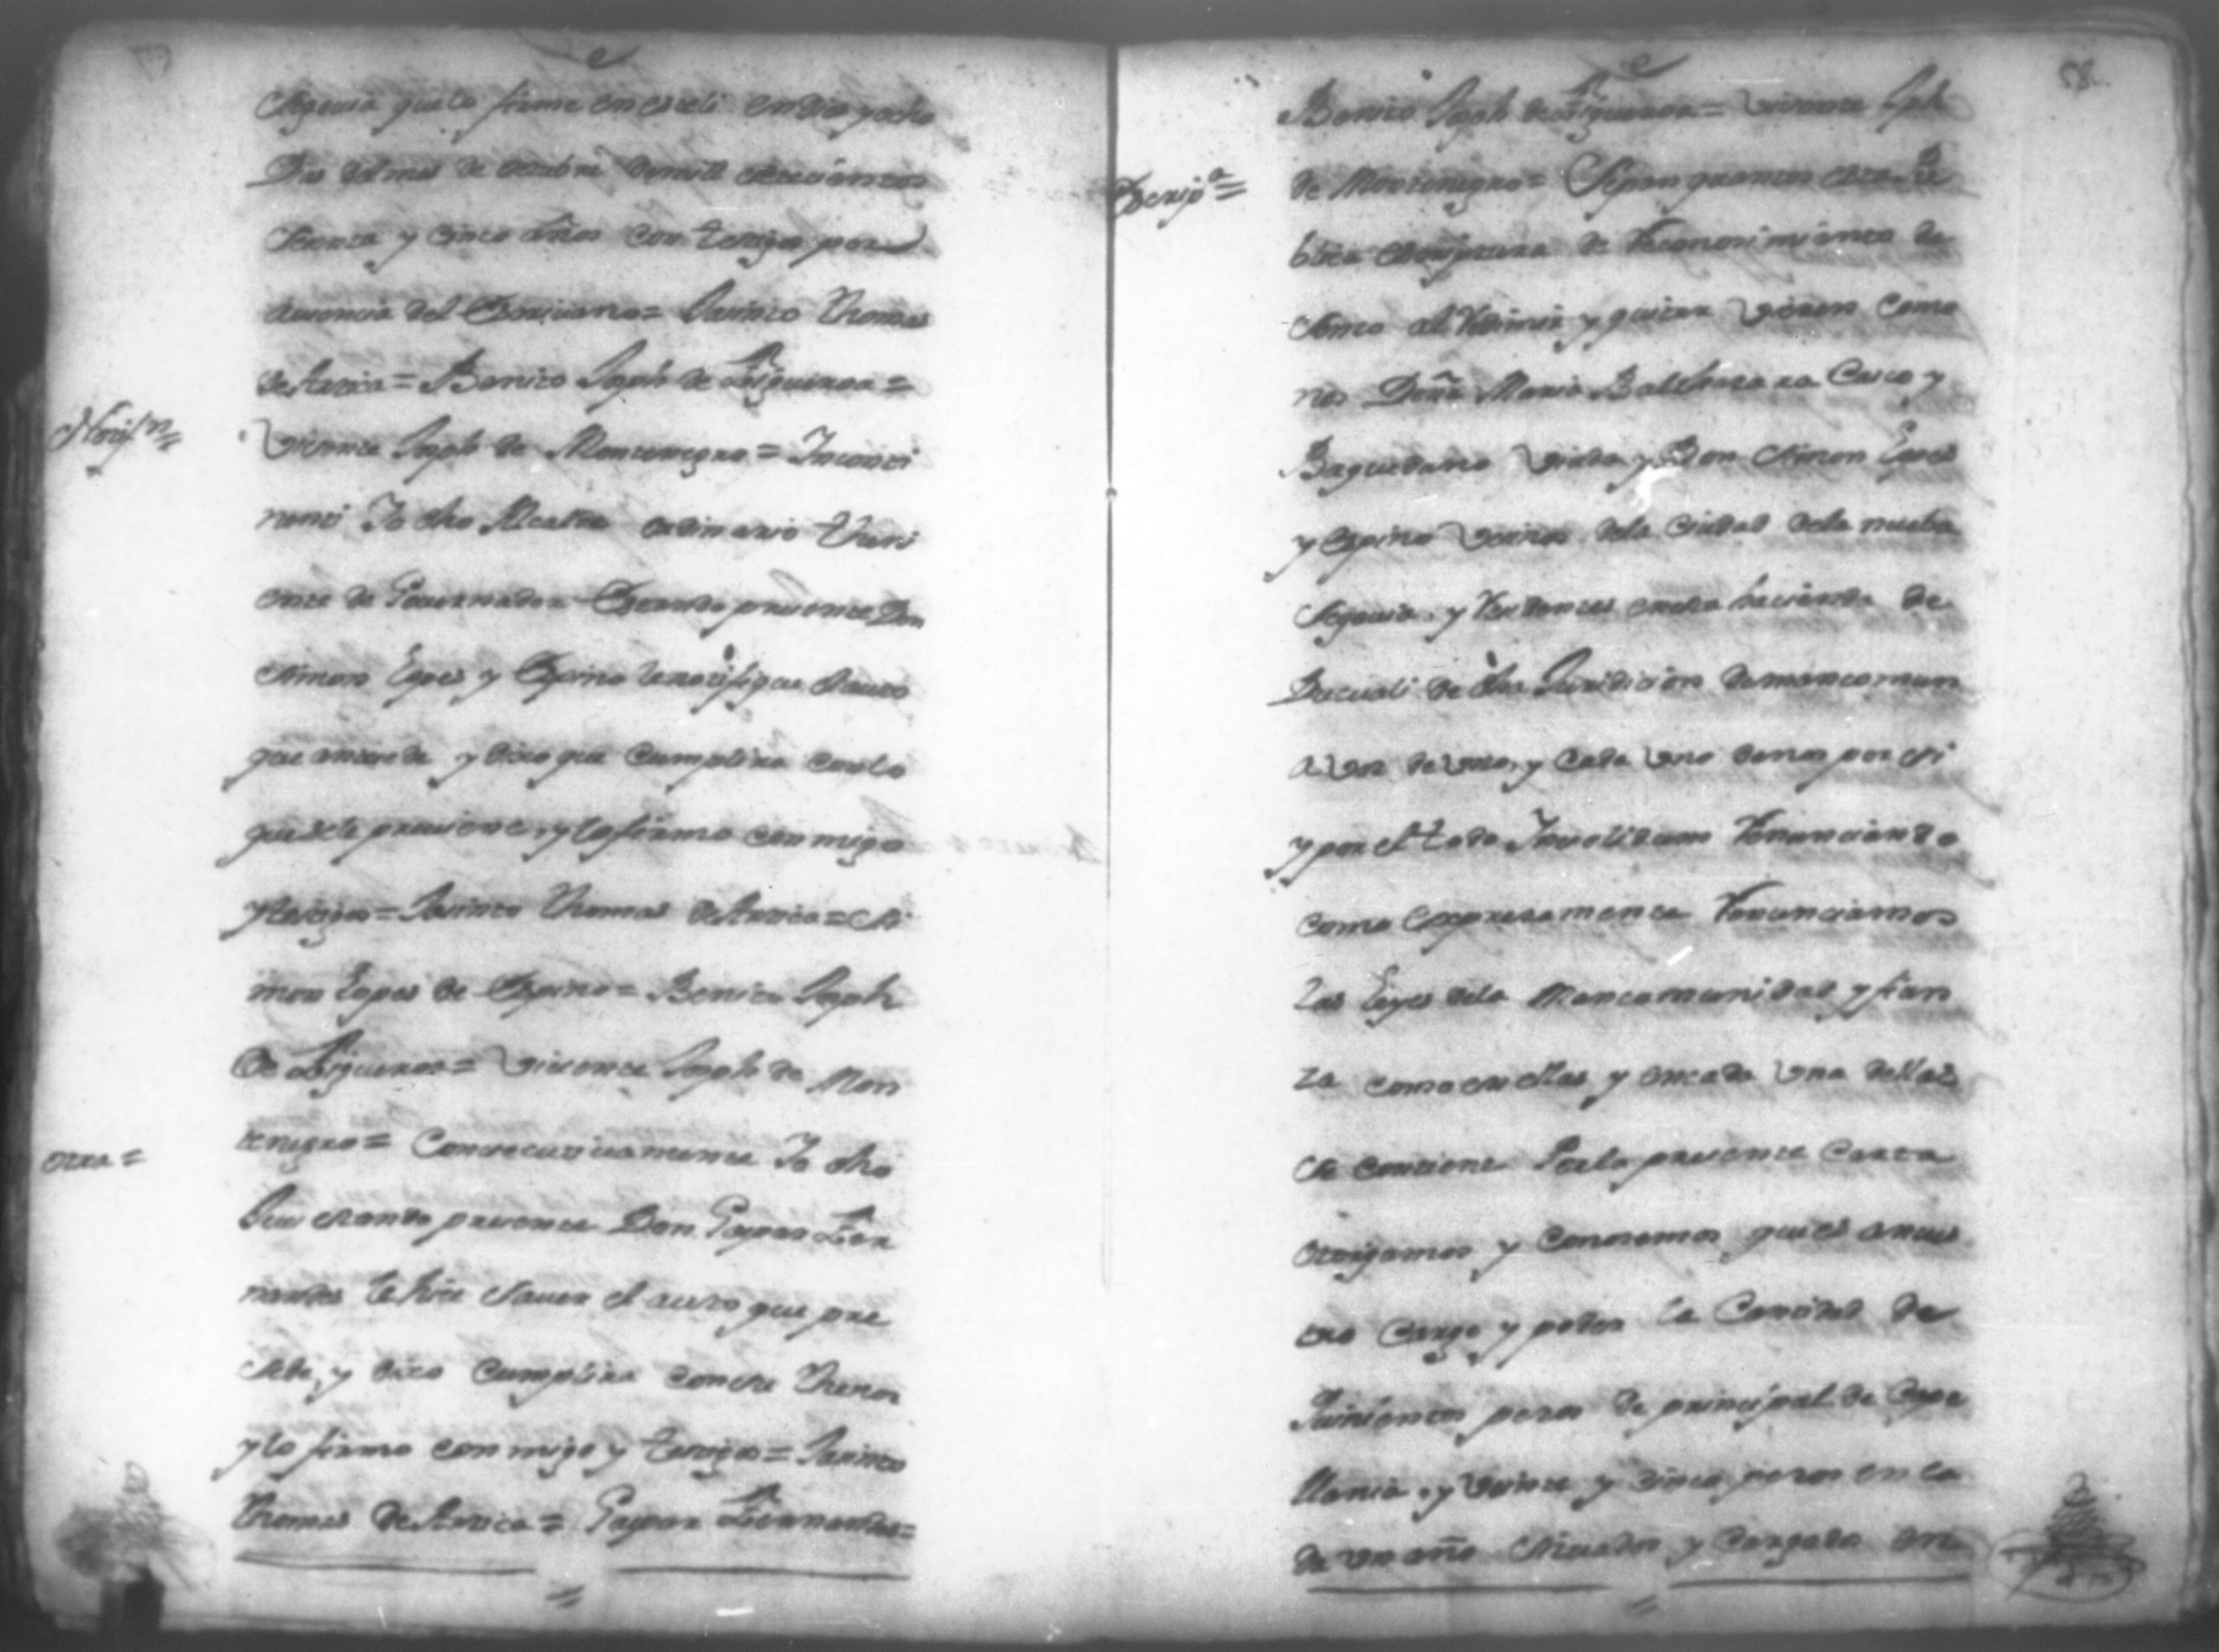 Segovia que lo firmé en Estelí en dies y ocho
Dias del mes de octubre de mill setecientos
setenta y cinco años con testigos por
ausencia del Escrivano= Jacinto Thomas
de Arrica= Benito Joseph de Figueroa=
Notifn=
Vicente Joseph de Montenegro= Inconti
nenti Yo dho Alcalde ordinario Theni
ente de Governador Estando presente Don
Simon Lopes y Espino le notifique el auto
que antecede y dixo que cumplira con lo
que se le previene, y lo firmo conmigo
y testigos= Jacinto Thomas de Arrica= Si
mon Lopes de Espino= Benito Joseph
de Figueroa= Vicente Joseph de Mon
otra=
tenegro= Consecutivamente Yo dho
Jues estando presente Don Gaspar Fer
nandes le hise saver el auto que pre
sede, y dixo cumplira con su thenor
y lo firmo conmigo y testigos= Jacinto
Thomas de Arrica= Gaspar Fernandes=
58
Benito Joseph de Figueroa= Vicente Joseph
Escripa=
de Montenegro= Sepan quantos esta Pu
blica Escriptura de Reconosimiento de
senso al Redimir y quitar vieren como
nos Doña Maria Balthazara Casco y
Baquedano viuda y Don Simon Lopes
y Espino vecinos dela Ciudad dela nueba
Segovia y Residentes en esta hacienda de
Ducuali de dha Juridicion de mancomun
a vos de uno, y cada uno de nos por si
y por el todo Ynsolidum Renunciando
como expresamente Renunciamos
las Leyes dela Mancomunidad y fian
za como en ellas y en cada una dellas
se contiene Por la presente Carta
otorgamos y conosemos que es a nues
tro Cargo y poder la Cantidad de
Quinientos pesos de principal de Cape
llania y veinte y cinco pesos en ca
da un año situados y cargado en